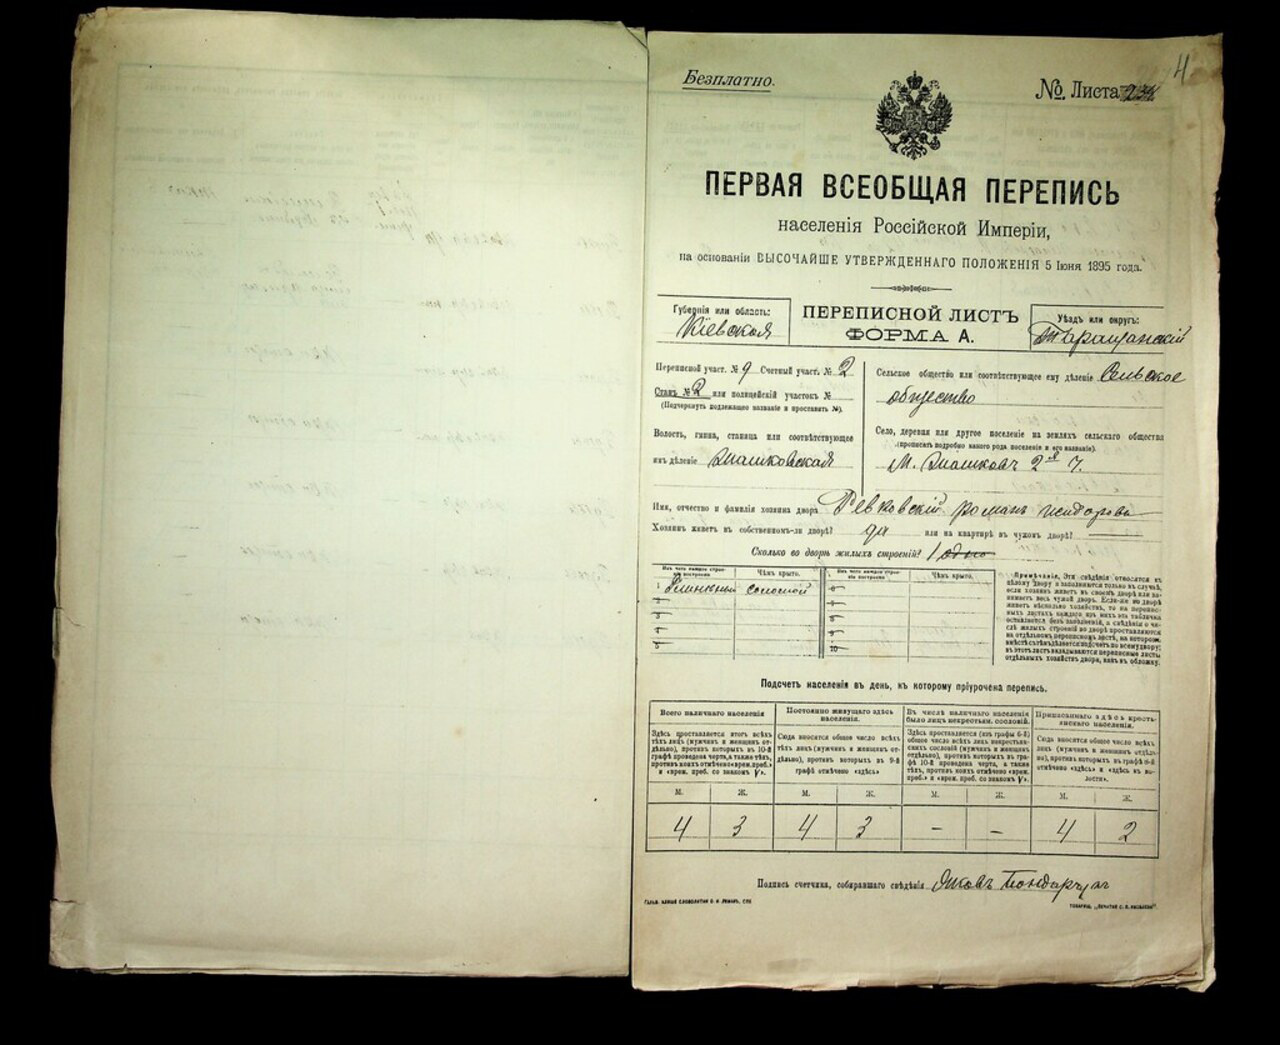 Безплатно.
4
№ Листа 234
ПЕРВАЯ ВСЕОБЩАЯ ПЕРЕПИСЬ
населенія Россійской Имперіи,
на основаніи ВЫСОЧАЙШЕ УТВЕРЖДЕННАГО ПОЛОЖЕНІЯ 5 Іюня 1895 года.
Губернія или область:
Кіевская
ПЕРЕПИСНОЙ ЛИСТЪ
ФОРМА А.
Уѣздъ или округъ:
Таращанскій
Переписной участ. № 9 Счетный участ. № 2
Станъ № 2 или полицейскій участокъ №
(Подчеркнуть подлежащее названіе и проставить №).
Волость, гмина, станица или соотвѣтствующее
имъ дѣленіе
Сельское общество или соотвѣтствующее ему дѣленіе Сельское
общество
Село, деревня или другое поселеніе на земляхъ сельскаго общества
(прописать подробно какого рода поселеніе и его названіе).
М. 2я ч.
Имя, отчество и фамилія хозяина двора Ревковскій Романъ Исидоровъ
Хозяинъ живетъ въ собственномъ-ли дворѣ? да или на квартирѣ въ чужомъ дворѣ? —
Сколько во дворѣ жилыхъ строеній? 1 одно
Изъ чего каждое строеніе построено
Чѣмъ крыто.
Изъ чего каждое строеніе построено
Чѣмъ крыто.
1 соломой
2
3
4
5
6
7
8
9
10
Примѣчанія. Эти свѣдѣнія относятся къ
цѣлому двору и заполняются только въ случаѣ,
если хозяинъ живетъ въ своемъ дворѣ или занимаетъ
весь чужой дворъ. Если-же во дворѣ
живетъ нѣсколько хозяйствъ, то на переписныхъ
листахъ каждаго изъ нихъ эта табличка
оставляется безъ заполненія, а свѣдѣнія о числѣ
жилыхъ строеній во дворѣ проставляются
на отдѣльномъ переписномъ листѣ, на которомъ
вмѣстѣ съ тѣмъ дѣлается подсчетъ по всему двору;
въ этотъ листъ вкладываются переписные листы
отдѣльныхъ хозяйствъ двора, какъ въ обложку.
Подсчетъ населенія въ день, къ которому пріурочена перепись.
Всего наличнаго населенія
Здѣсь проставляется итогъ всѣхъ
лицъ (мужчинъ и женщинъ отдѣльно),
противъ которыхъ въ 10-й
графѣ проведена черта, а также тѣхъ,
противъ коихъ отмѣчено «врем. преб.»
и «врем. преб. со знакомъ V».
Постоянно живущаго здѣсь
населенія.
Сюда вносятся общее число всѣхъ
тѣхъ лицъ (мужчинъ и женщинъ отдѣльно),
противъ которыхъ въ 9-й
графѣ отмѣчено «здѣсь»
Въ числѣ наличнаго населенія
было лицъ некрестьянск. сословій.
Здѣсь проставляется (изъ графы 6-й)
общее число всѣхъ лицъ некрестьянскихъ
сословій (мужчинъ и женщинъ
отдѣльно), противъ которыхъ въ графѣ
10-й проведена черта, а также
тѣхъ, противъ коихъ отмѣчено «врем.
преб.» и «врем. преб. со знакомъ V».
Приписаннаго здѣсь крестьянскаго
населенія.
Сюда вносится общее число всѣхъ
лицъ (мужчинъ и женщинъ отдѣльно),
противъ которыхъ въ графѣ 8-й
отмѣчено «здѣсь» и «здѣсь въ волости».
М. Ж. М. Ж. М. Ж. М. Ж.
4 3 4 3 – – 4 2
Подпись счетчика, собиравшаго свѣдѣнія Яковъ Бондарчукъ